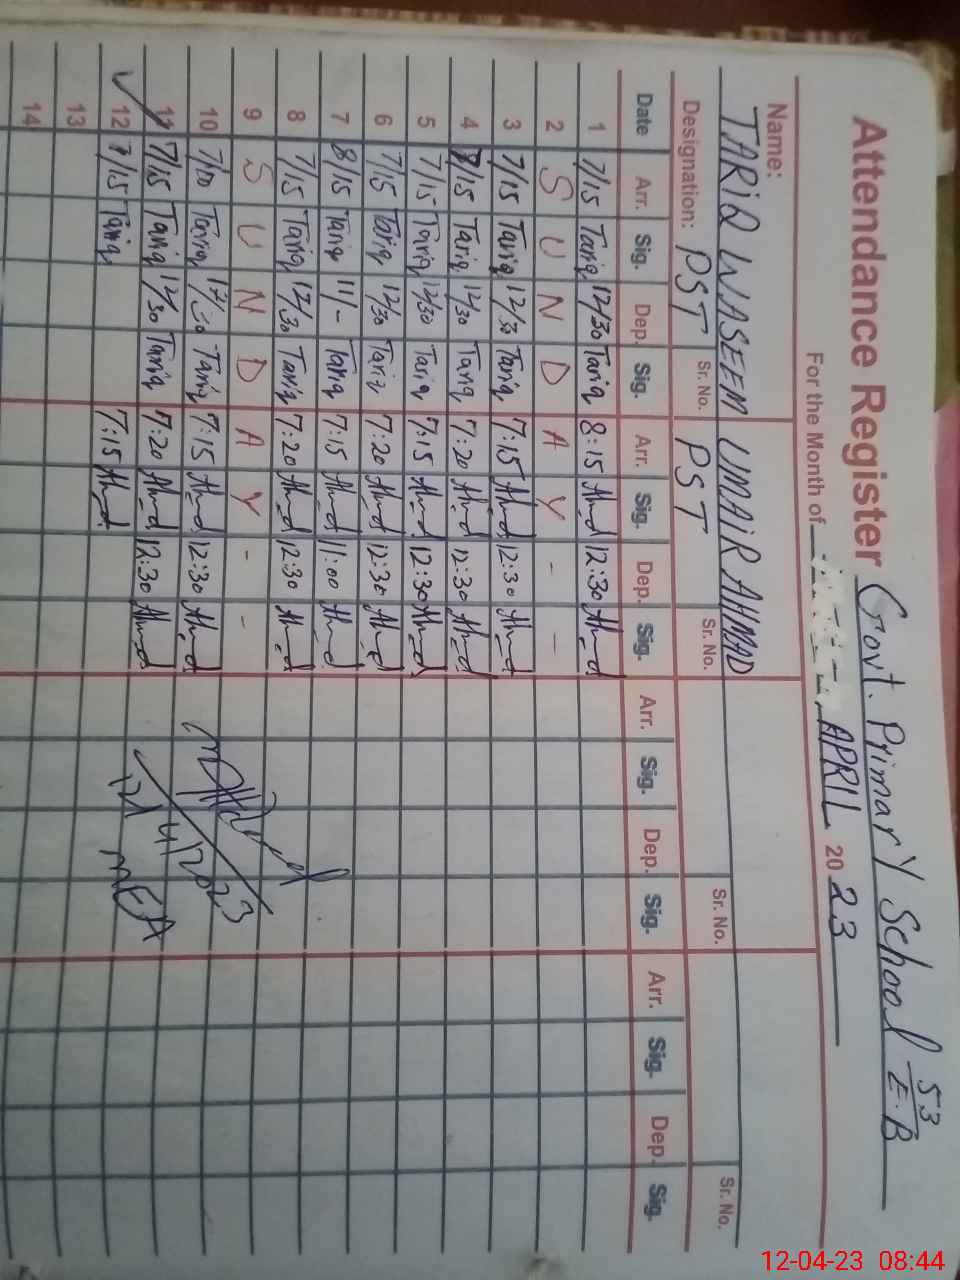 Attendance Register Govt. Primary School 53/E.B
For the Month of APRIL 2023
Name: TARIQ WASEEM UMAIR AHMAD
Designation: PST Sr. No. PST Sr. No. Sr. No. Sr. No.
Date Arr. Sig. Dep. Sig. Arr. Sig. Dep. Sig. Arr. Sig. Dep. Sig. Arr. Sig. Dep. Sig.
1 7/15 Tariq 12/30 Tariq 8:15 Ahmad 12:30 Ahmad
2 S U N D A Y - -
3 7/15 Tariq 12/30 Tariq 7:15 Ahmad 12:30 Ahmad
4 /15 Tariq 12/30 Tariq 7:20 Ahmad 12:30 Ahmad
5 7/15 Tariq 12/30 Tariq 7:15 Ahmad 12:30 Ahmad
6 7/15 Tariq 12/30 Tariq 7:20 Ahmad 12:30 Ahmad
7 8/15 Tariq 11/- Tariq 7:15 Ahmad 11:00 Ahmad
8 7/15 Tariq 12/30 Tariq 7:20 Ahmad 12:30 Ahmad
9 S U N D A Y - -
10 7/10 Tariq 12/30 Tariq 7:15 Ahmad 12:30 Ahmad
11 7/15 Tariq 12/30 Tariq 7:20 Ahmad 12:30 Ahmad
12 7/15 Tariq 7:15 Ahmad
12/4/2023
MEA
13
14
12-04-23 08:44